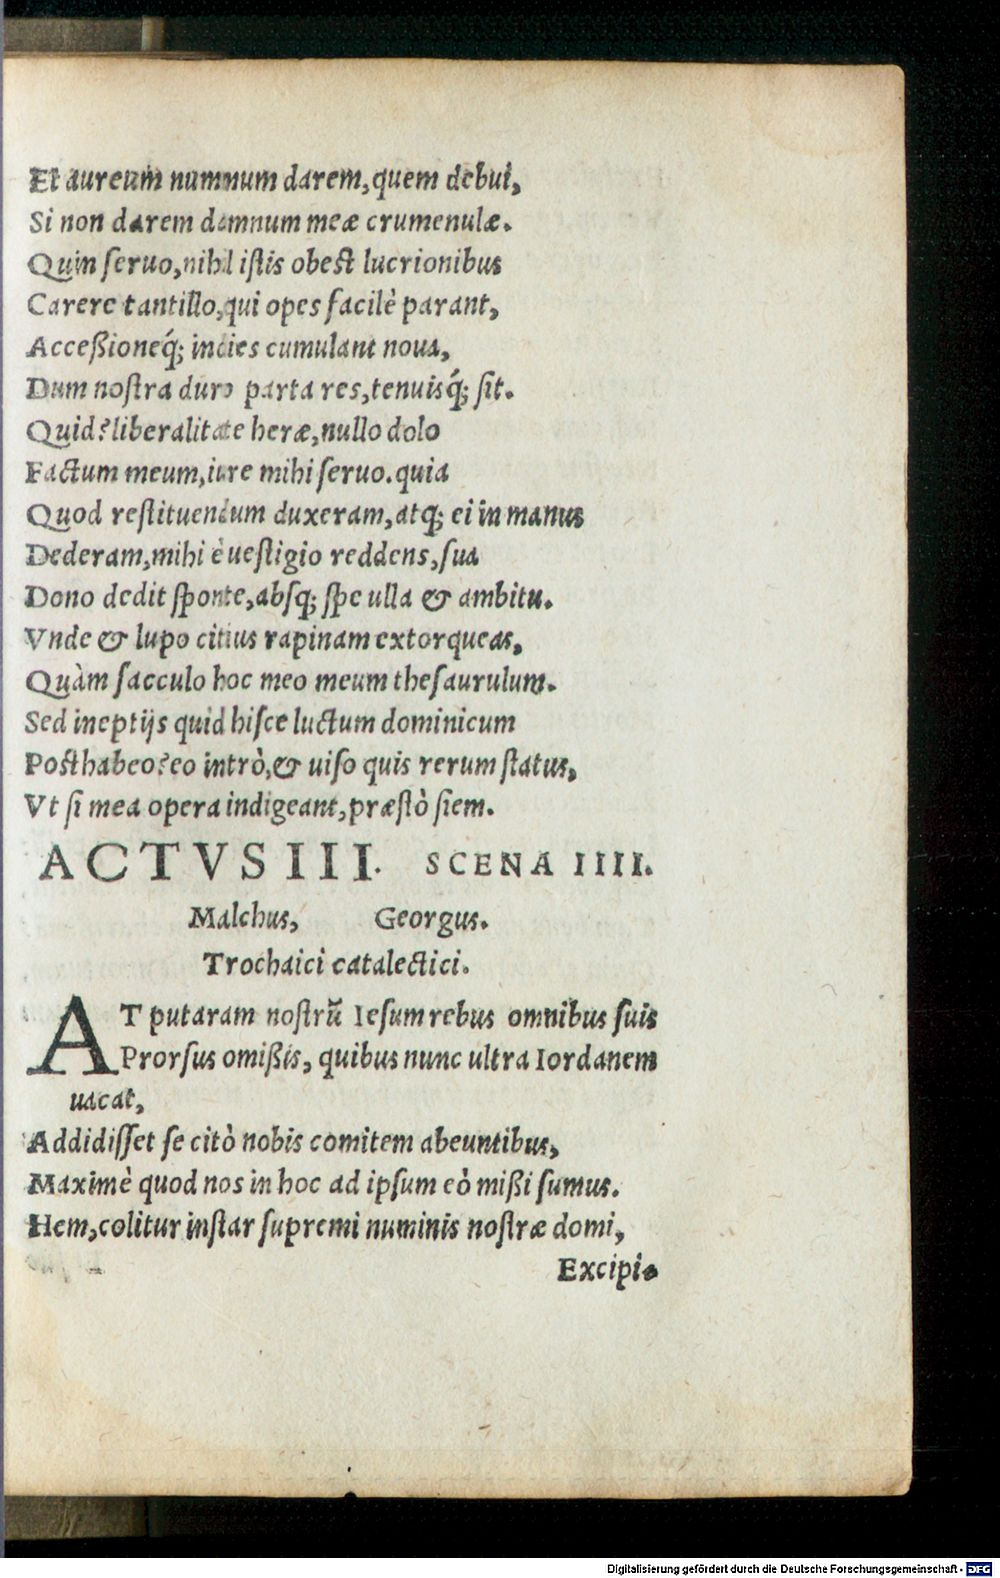 Et aureum nummum darem, quem debui,
Si non darem damnum meæ crumenulæ.
Quin seruo, nihil istis obest lucrionibus
Carere tantillo, qui opes facilè parant,
Acceßioneq́; indies cumulant noua,
Dum nostra duro parta res, tenuisq́; sit.
Quid? liberalitate heræ, nullo dolo
Factum meum, iure mihi seruo. quia
Quod restituendum duxeram, atq; ei in manus
Dederam, mihi è uestigio reddens, sua
Dono dedit sponte, absq; spe ulla & ambitu.
Vnde & lupo citius rapinam extorqueas,
Quàm sacculo hoc meo meum thesaurulum.
Sed ineptijs quid hisce luctum dominicum
Posthabeo? eo intrò, & uiso quis rerum status,
Vt si mea opera indigeant, præstò siem.
ACTVS III. SCENA IIII.
Malchus, Georgus.
Trochaici catalectici.
AT putaram nostrũ Iesum rebus omnibus suis
Prorsus omißis, quibus nunc ultra Iordanem
uacat,
Addidisset se citò nobis comitem abeuntibus,
Maximè quod nos in hoc ad ipsum eò mißi sumus.
Hem, colitur instar supremi numinis nostræ domi,
Excipi-
Digitalisierung gefördert durch die Deutsche Forschungsgemeinschaft - DFG